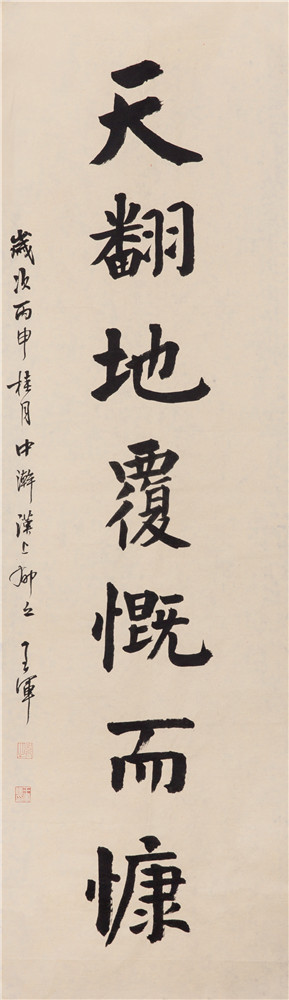 天翻地覆慨而慷
歲次丙申桂月中澣漢上柳之王軍